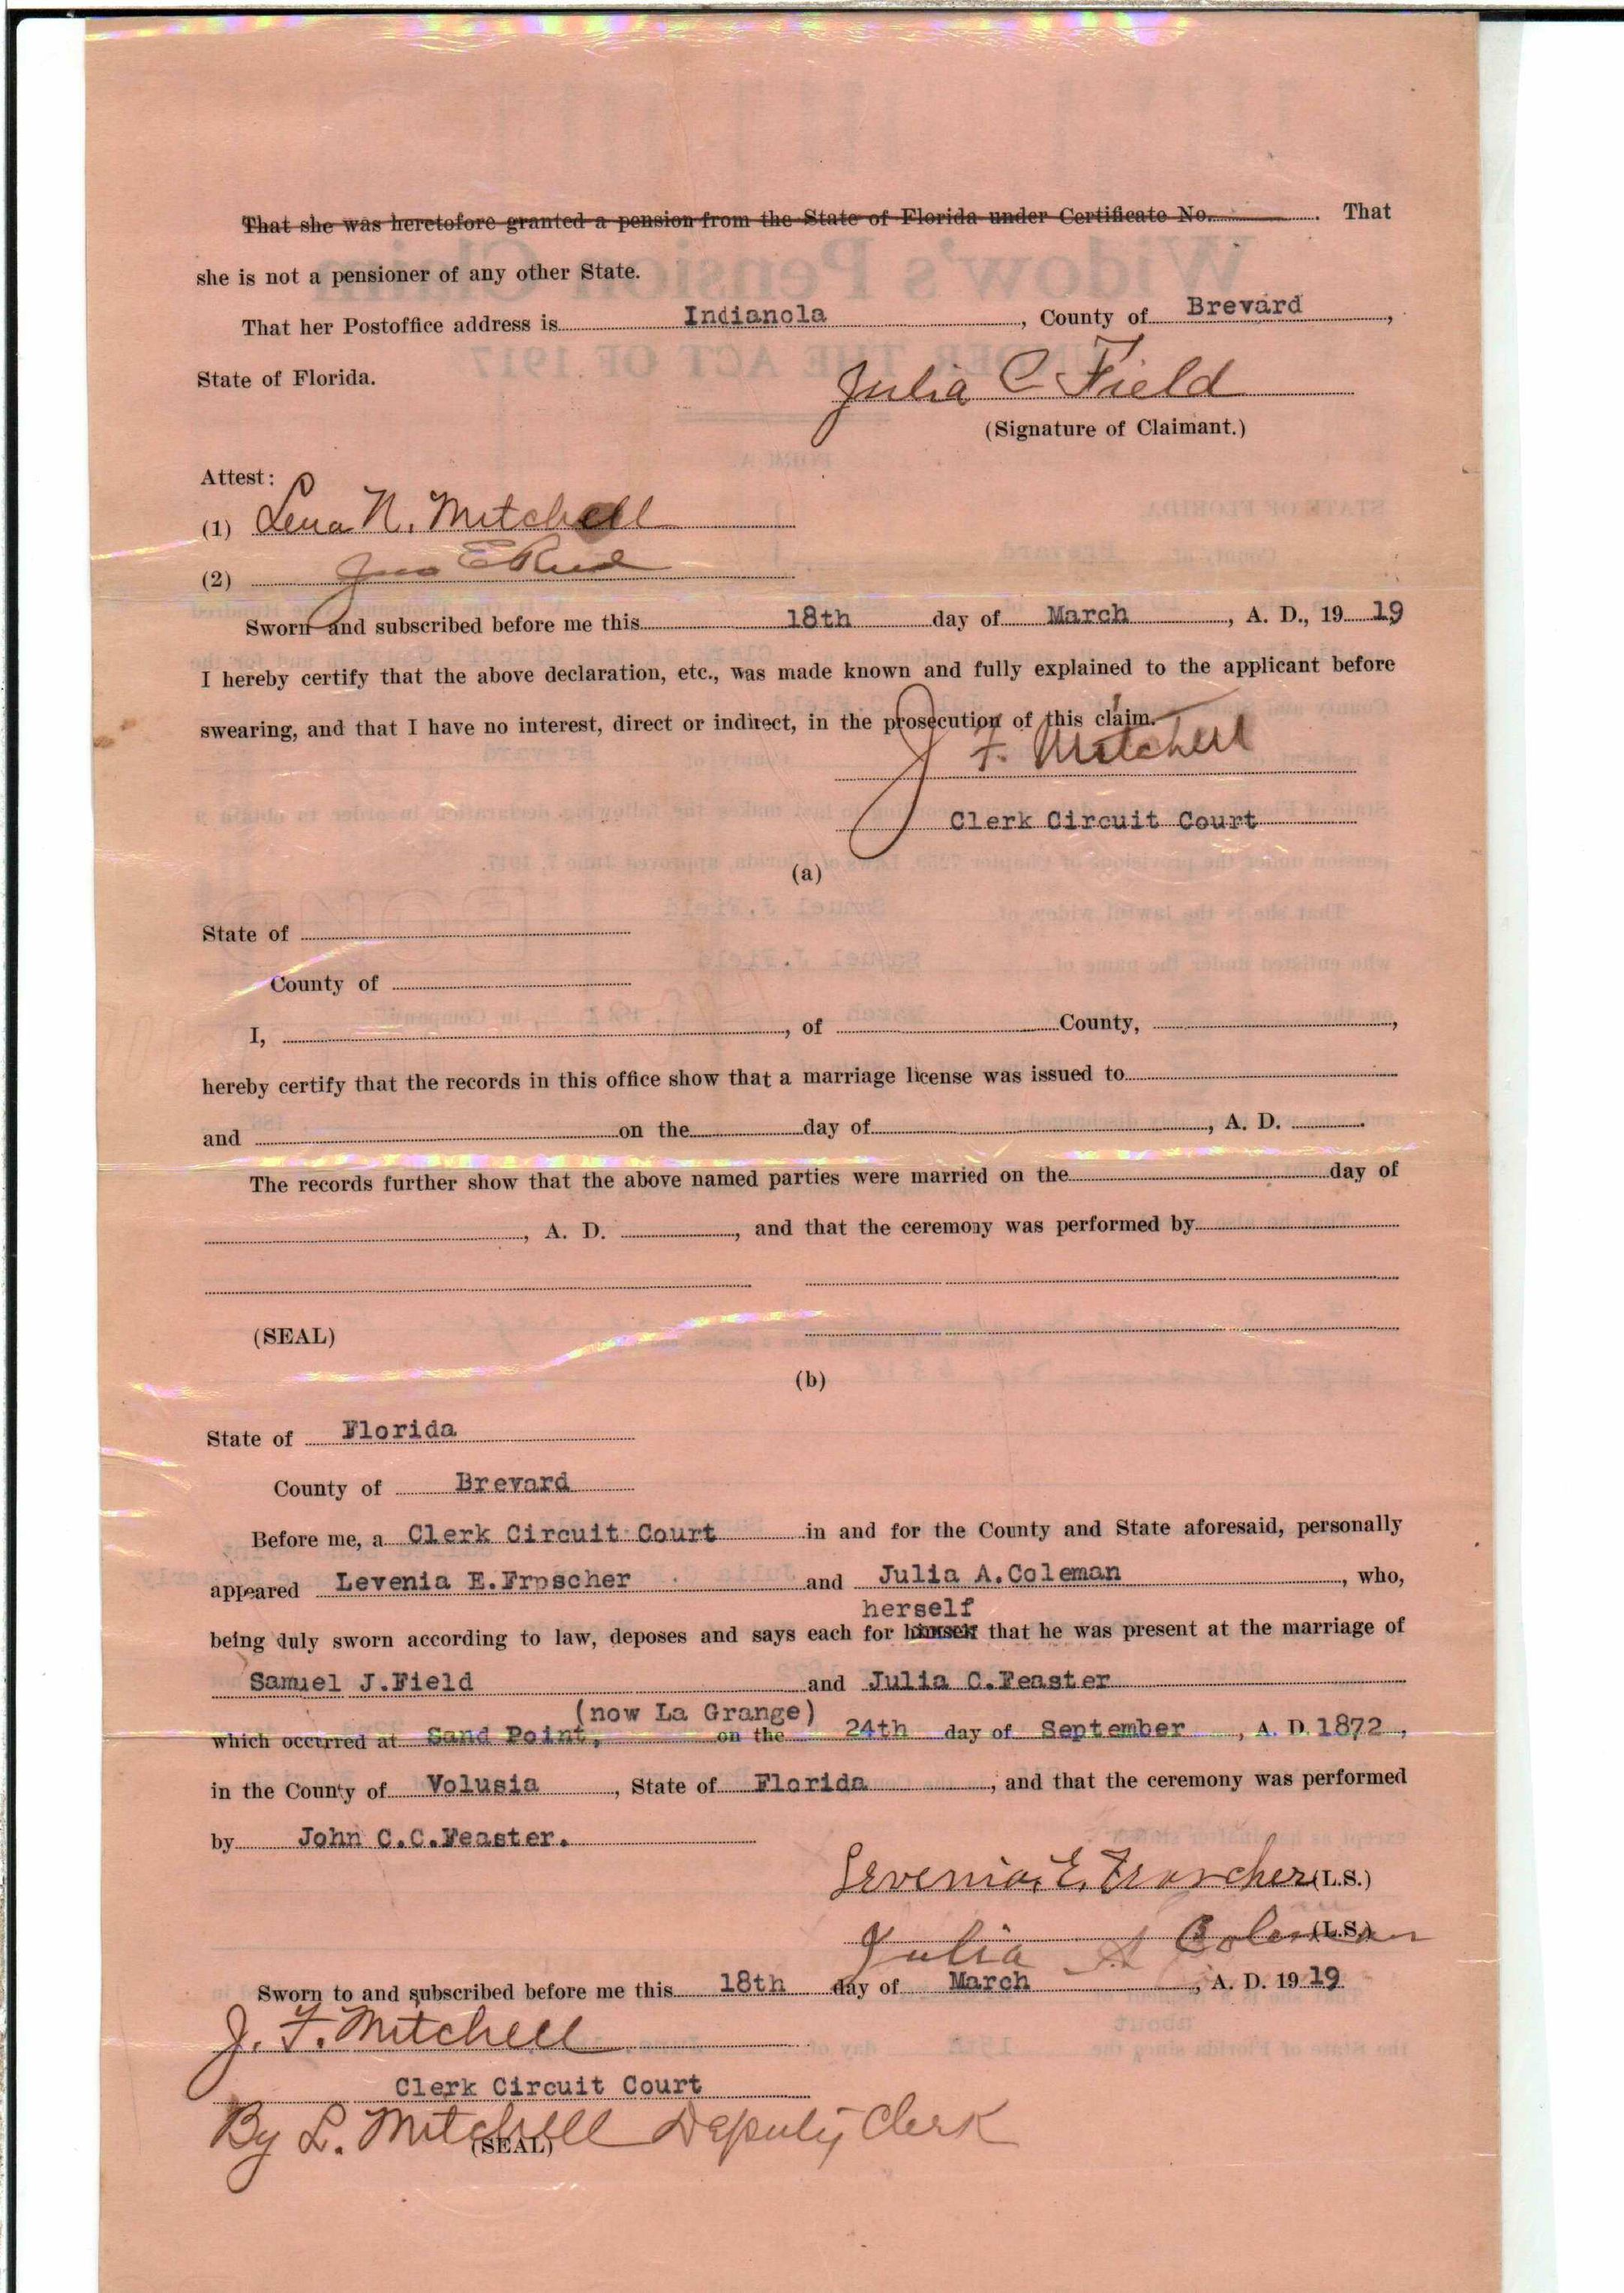 That she was heretofore granted a pension from the State of Florida under Certificate No. . That
she is not a pensioner of any other State.
That her Postoffice address is Indianola, County of Brevard,
State of Florida.
Julia C Field
(Signature of Claimant.)
Attest:
(1) Lena N. Mitchell
(2) Jno E Reed
Sworn and subscribed before me this 18th day of March, A. D., 1919
I hereby certify that the above declaration, etc., was made known and fully explained to the applicant before
swearing, and that I have no interest, direct or indirect, in the prosecution of this claim.
J F. Mitchell
Clerk Circuit Court
(a)
State of
County of
I, , of County, ,
hereby certify that the records in this office show that a marriage license was issued to
and on the day of , A. D.
The records further show that the above named parties were married on the day of
, A. D. , and that the ceremony was performed by
(SEAL)
(b)
State of Florida
County of Brevard
Before me, a Clerk Circuit Court in and for the County and State aforesaid, personally
appeared Levenia E.Froscher and Julia A.Coleman, who,
herself
being duly sworn according to law, deposes and says each for himself that he was present at the marriage of
Samuel J.Field and Julia C.Feaster
(now La Grange)
which occurred at Sand Point, on the 24th day of September, A. D. 1872,
in the County of Volusia, State of Florida, and that the ceremony was performed
by John C.C.Feaster.
Levenia E. Froscher (L.S.)
Julia A Coleman (L.S.)
Sworn to and subscribed before me this 18th day of March, A. D. 1919
J. F. Mitchell
Clerk Circuit Court
By L. Mitchell Deputy Clerk
(SEAL)